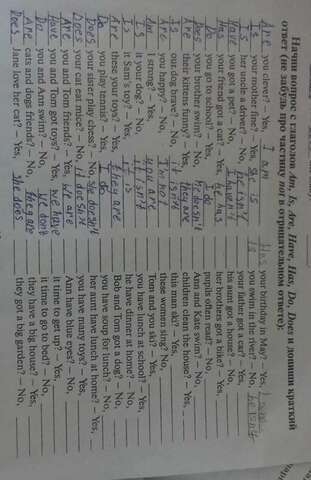 Начни вопрос с глаголов Am, Is, Are, Have, Has, Do, Does и допиши краткий
ответ (не забудь про частицу not в отрицательном ответе):
Are you clever? – Yes, I am
Is your mother fine? – Yes, she is
Is her uncle a driver? – No, he isn't
Have you got a pet? – No, I haven't
Has your friend got a cat? – Yes, he has
Do you go to school? – Yes, I do
Does your brother swim? – No, he doesn't
Are their kittens funny? – Yes, they are
Is our dog brave? – No, it isn't
Are you happy? – No, I'm not
Am I strong? – Yes, you are
Is your dog? – No, it isn't
Is it Sam's toy? – Yes, it is
Are these your toys? – Yes, they are
Do you play tennis? – Yes, I do
Does your sister play chess? – No, she doesn't
Does your cat eat mice? – No, it doesn't
Are you and Tom friends? – Yes, we are
Have you and Tom got toys? – Yes, we have
Do you and Ann swim? – No, we don't
Are Kate and Den friends? – No, they are
Does Jane love her cat? – Yes, she does
your birthday in May? – Yes,
you swim in the river? – No, he isn't
your father got a car? – Yes,
his aunt got a house? – No,
her brothers got a bike? – Yes,
pupils often read? – No,
Ann and Kate swim? – No,
children clean the house? – Yes,
this man ski? – Yes,
these women sing? No,
Tom and you tai? – Yes,
you have lunch at school? – Yes,
he have dinner at home? – No,
Bob and Tom got a dog? – No,
you have soup for lunch? – No,
her aunt have lunch at home? – Yes,
you have many toys? – Yes,
Ann have blue eyes? – No,
it time to get up? – Yes,
it time to go to bed? – No,
they have a big house? – Yes,
they got a big garden? – No,